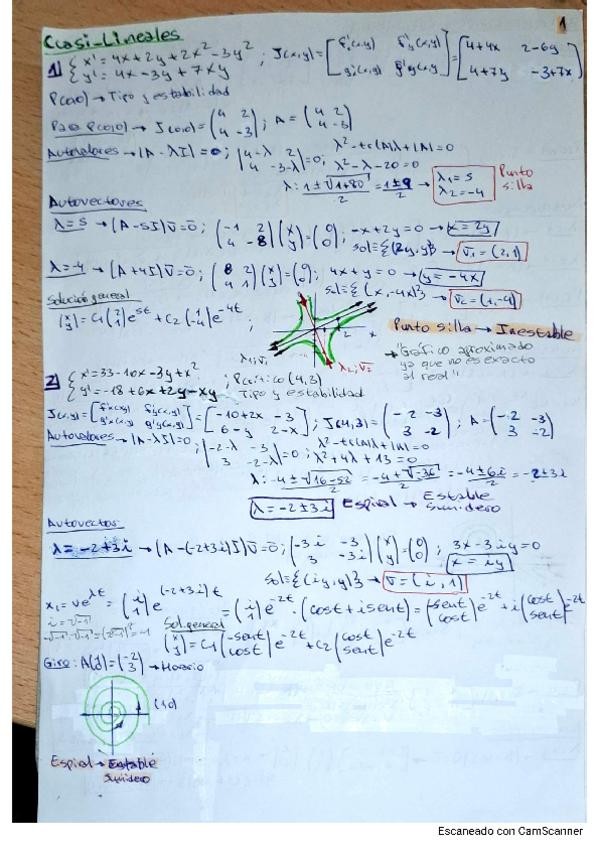 1
Cuasi-Lineales
1) { x' = 4x + 2y + 2x² - 3y² ; J(x,y) = [f'x(x,y) f'y(x,y) = [4+4x 2-6y
y' = 4x - 3y + 7xy g'x(x,y) g'y(x,y)] 4+7y -3+7x]
P(0,0) → Tipo y estabilidad
Para P(0,0) → J(0,0) = (4 2 ; A = (4 2
4 -3) 4 -3)
Autovalores → |A - λI| = 0; |4-λ 2 = 0; λ² - tr(A)λ + |A| = 0
4 -3-λ| λ² - λ - 20 = 0
λ: 1±√1+80 / 2 = 1±9 / 2 → λ1 = 5 λ2 = -4 Punto silla
Autovectores
λ = 5 → (A - 5I)v̄ = ō; (-1 2 (x = (0 ; -x + 2y = 0 → x = 2y
4 -8) y) 0) sol = {(2y, y)} → v̄1 = (2,1)
λ = -4 → (A + 4I)v̄ = ō; (8 2 (x = (0 ; 4x + y = 0 → y = -4x
4 1) y) 0) sol = {(x, -4x)} → v̄2 = (1,-4)
Solución general
(x y) = C1 (2 1) e^5t + C2 (1 -4) e^-4t ;
x
λ1; v̄1
λ2; v̄2
Punto silla → Inestable
→ "Gráfico aproximado
ya que no es exacto
al real"
2) { x' = 33 - 10x - 3y + x² ; P crítico (4,3)
y' = -18 + 6x + 2y - xy Tipo y estabilidad
J(x,y) = [f'x(x,y) f'y(x,y) = [-10+2x -3 ; J(4,3) = (-2 -3 ; A = (-2 -3
g'x(x,y) g'y(x,y)] 6-y 2-x] 3 -2) 3 -2)
Autovalores → |A - λI| = 0; |-2-λ -3 = 0; λ² - tr(A)λ + |A| = 0
3 -2-λ| λ² + 4λ + 13 = 0
λ: -4±√16-52 / 2 = -4±√-36 / 2 = -4±6i / 2 = -2±3i
λ = -2±3i Espiral → Estable
sumidero
Autovector
λ = -2+3i → (A - (-2+3i)I)v̄ = ō; (-3i -3 (x = (0 ; 3x - 3iy = 0
3 -3i) y) 0) x = iy
sol = {(iy, y)} → v̄ = (i, 1)
x1 = ve^λt = (i 1) e^(-2+3i)t = (i 1) e^-2t · (cost + isent) = (-sent cost) e^-2t + i (cost sent) e^-2t
i = √-1
√-1·√-1 = (√-1)² = -1
Sol. general
(x y) = C1 (-sent cost) e^-2t + C2 (cost sent) e^-2t
Giro: A(1 0) = (-2 3) → Horario
(1,0)
Espiral → Estable
sumidero
Escaneado con CamScanner